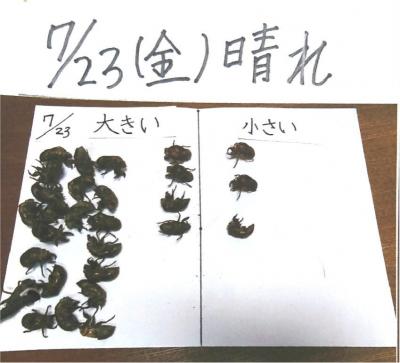 7/23(金)晴れ
7/23 大きい 小さい